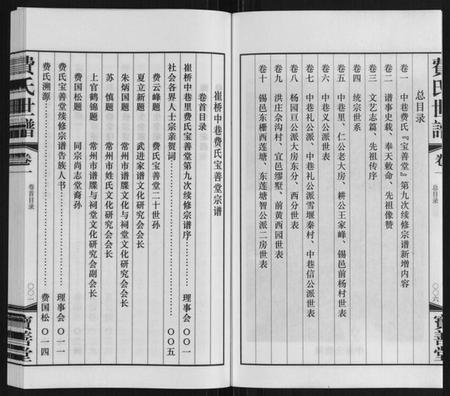 费氏世譜
卷一
总目录
〇〇六
寶善堂
总目录
卷一　中巷费氏『宝善堂』第九次续修宗谱新增内容
卷二　谱事史载、奉天敕命、先祖像赞
卷三　文艺志篇、先祖传序
卷四　统宗世系
卷五　中巷里、仁公老大房、耕公王家峰、锡邑前杨村世表
卷六　中巷义公派世表
卷七　中巷礼公派、中巷礼公派雪堰秦村、中巷信公派世表
卷八　杨园亘公派大房东分、西分世表
卷九　洪庄余沟村、宜邑缪墅、前黄西园世表
卷十　锡邑东栅西莲塘、东莲塘智公派二房世表
崔桥中巷费氏宝善堂宗谱
卷首目录
崔桥中巷里费氏宝善堂第九次续修宗谱序　理事会　〇〇一
社会各界人士宗亲贺词　〇〇五
费云峰题　中巷费氏宝善堂二十世孙
夏立新题　武进家谱文化研究会会长
朱炳国题　常州市谱牒与祠堂文化研究会会长
苏慎题　常州市姓氏文化研究会会长
上官鹤锦题　常州市谱牒与祠堂文化研究会副会长
费国松题　同宗尚志堂裔孙
费氏宝善堂续修宗谱告族人书　理事会　〇一一
费氏溯源　费国松　〇一四
费氏世譜
卷一
卷首目录
寶善堂